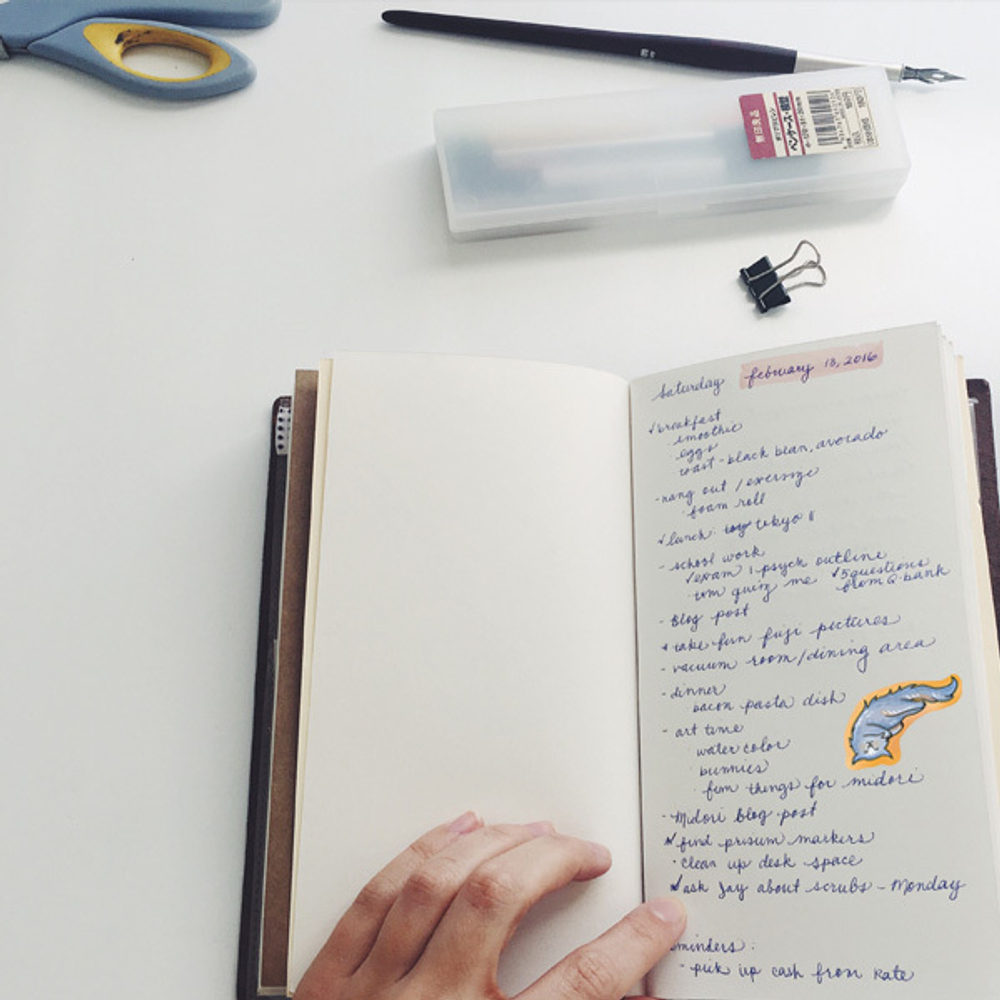 無印良品
ペンケース・
saturday february 13, 2016
✓breakfast
· smoothie
· eggs
toast - black bean, avocado
- hang out / exersize
· foam roll
✓lunch: tokyo
- school work
✓exam 1 psych outline
· tom quizz me ✓5 questions from Q-bank
- blog post
take fun fuji pictures
- vacuum room/dining area
- dinner
bacon pasta dish
- art time
water color
· bunnies
· fun things for midori
- Midori blog post
✓find prisum markers
· clean up desk space
✓ask Jay about scrubs - Monday
minders:
- pick up cash from Kate